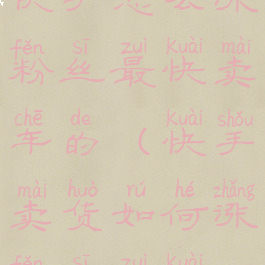 fěn sī zuì kuài mài
粉丝最快卖
chē de kuài shǒu
车的（快手
mài huò rú hé zhǎng
卖货如何涨
fěn sī zuì kuài